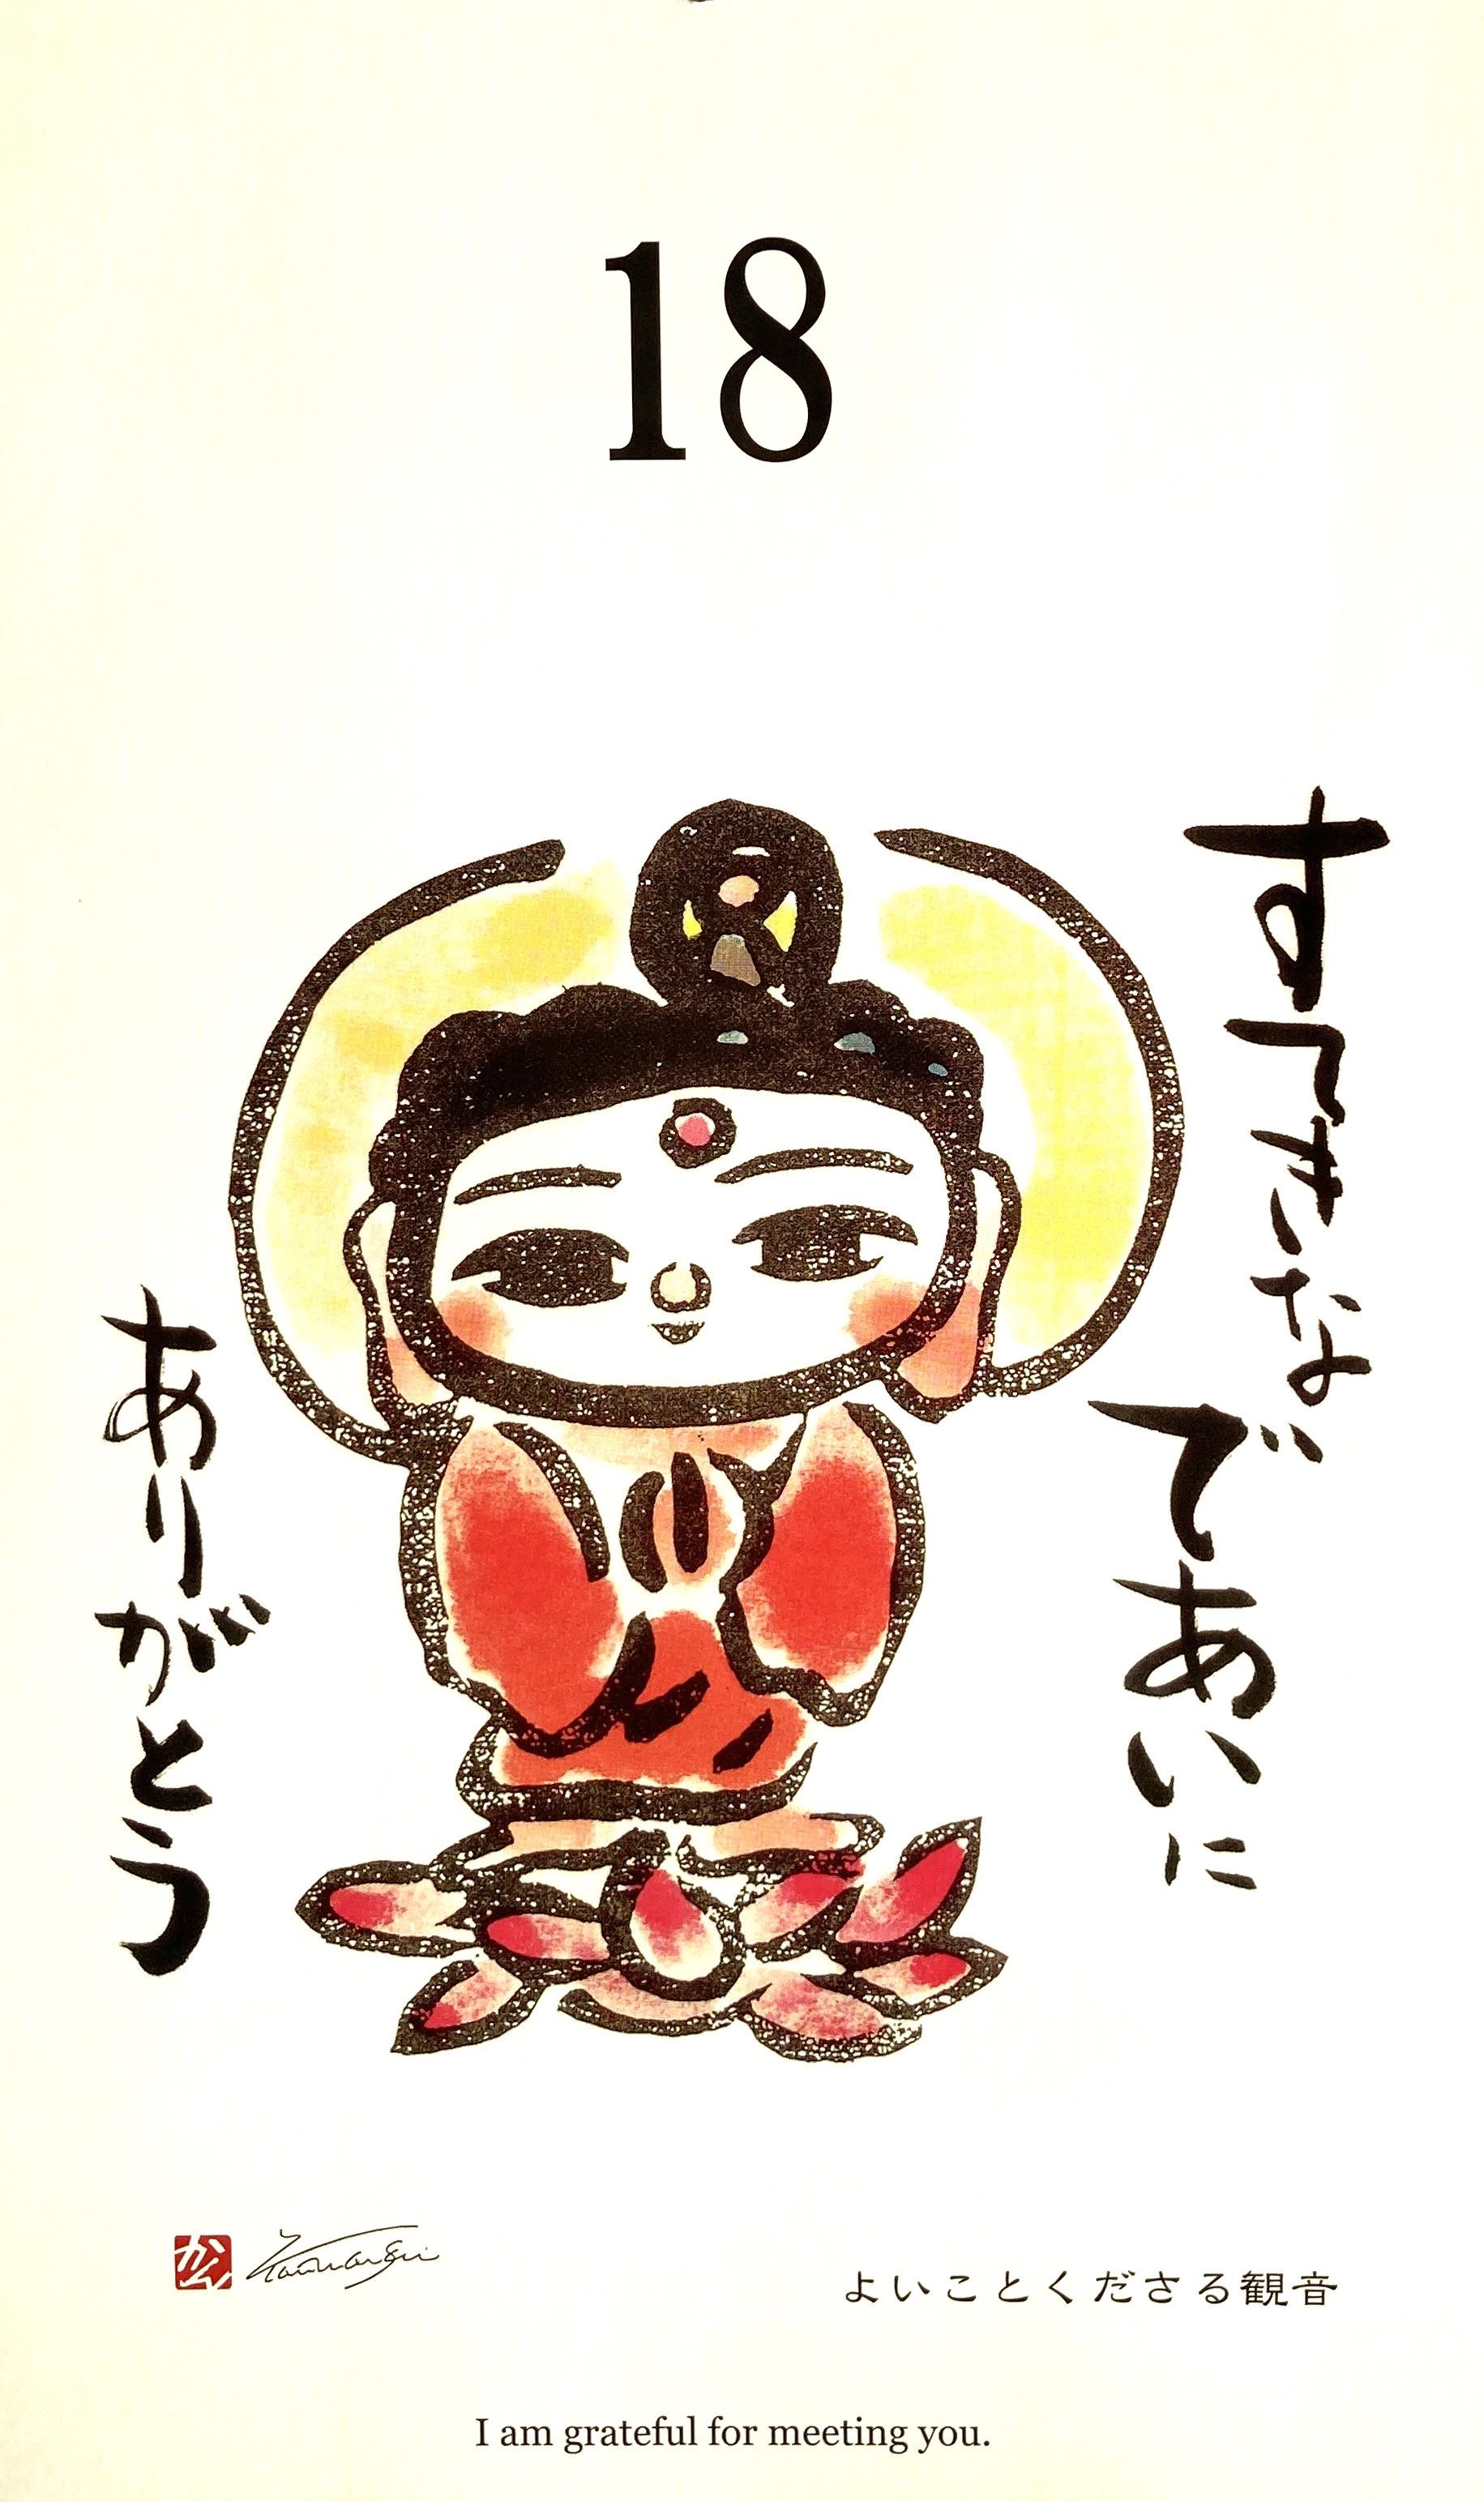 18
すてきな
であいに
ありがとう
よいことくださる観音
I am grateful for meeting you.